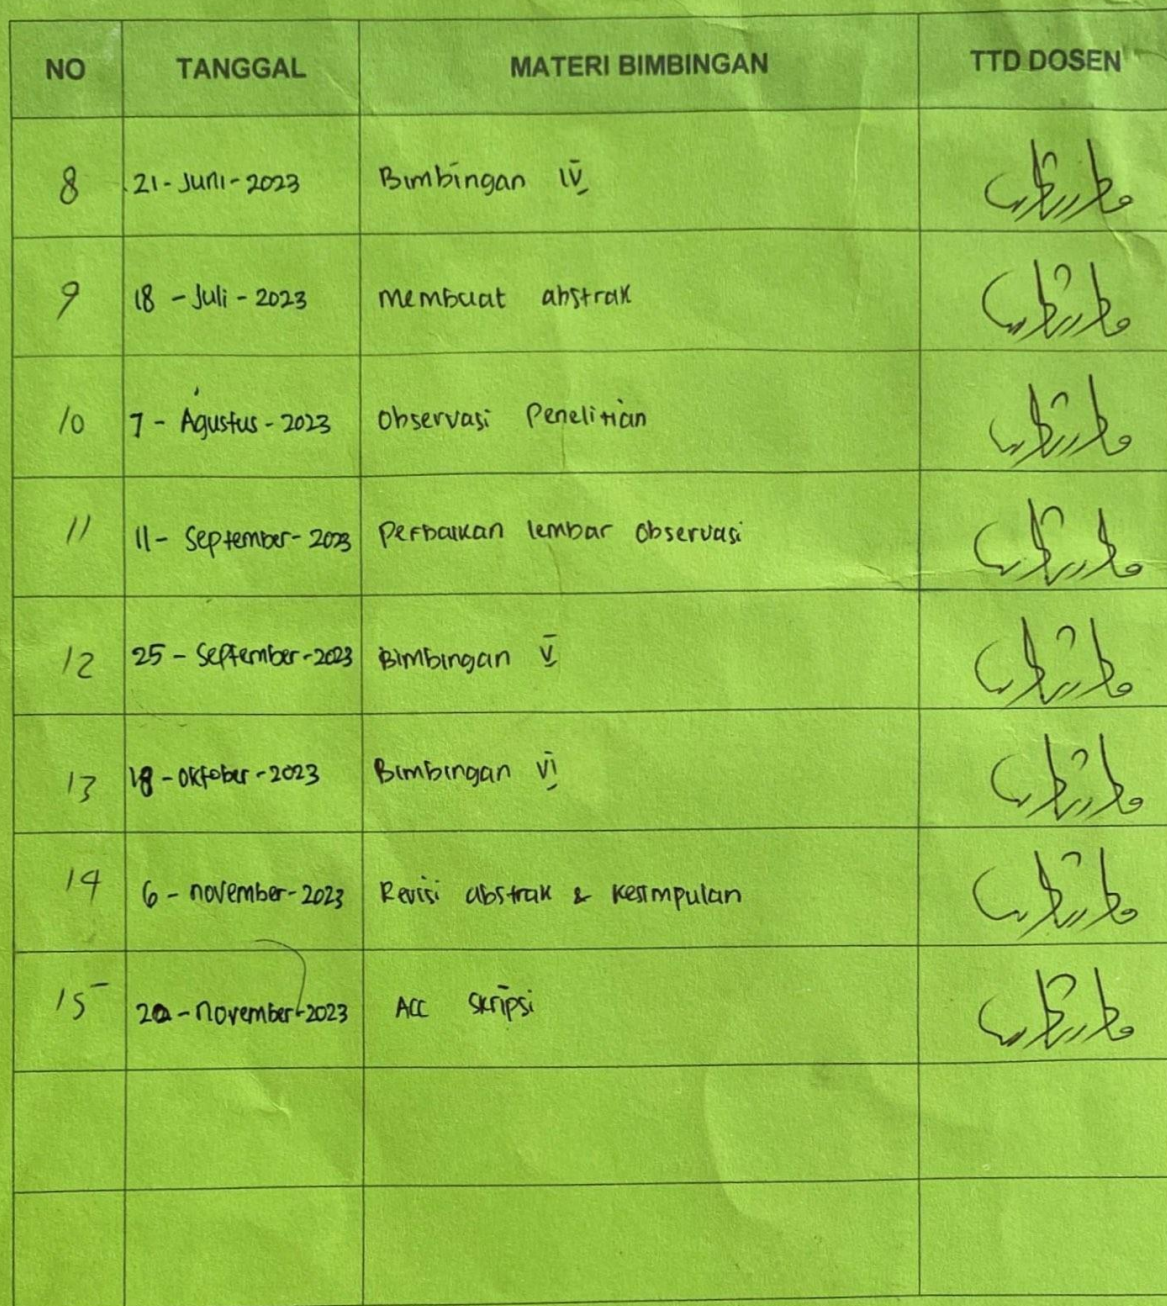 NO TANGGAL MATERI BIMBINGAN TTD DOSEN
8 21-Juni-2023 Bimbingan IV
9 18-Juli-2023 membuat abstrak
10 7-Agustus-2023 Observasi Penelitian
11 11-September-2023 Perbaikan lembar observasi
12 25-September-2023 Bimbingan V
13 18-Oktober-2023 Bimbingan VI
14 6-november-2023 Revisi abstrak & kesimpulan
15 20-november-2023 Acc skripsi